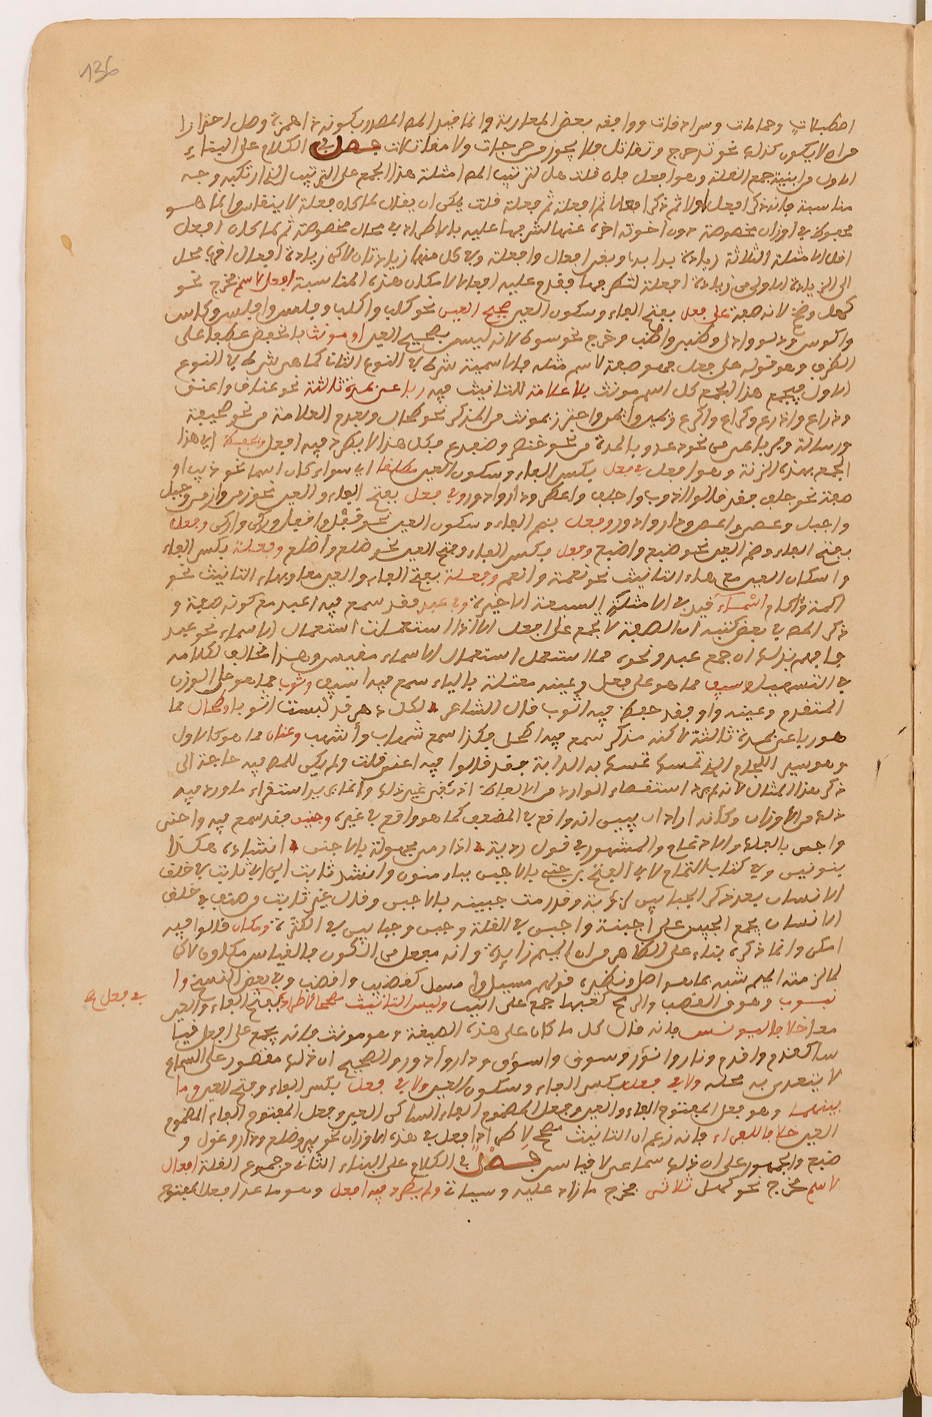 136
اصطبلات وحمامات وسرادقات ووافقه بعض المغاربة وإنما قيد المص المصدر بكونه ذا همزة وصل احترازا
من ان لا يكون كذلك نحو تدحرج وتقاتل فلا يجوز تدحرجات ولا مقاتلات فصل في الكلام على البناء
الاول من ابنية جمع القلة وهو افعل فان قلت هل لترتيب المص امثلة هذا الجمع على الترتيب الذي ارتكبه وجه
مناسبة فانه ذكر افعل اولا ثم ذكر افعالا ثم افعلة ثم فعلة قلت يمكن ان يقال لما كان فعلة لا ينقاس وانما هو
محفوظ في اوزان مخصوصة دون اخوته اخره عنها لشرفها عليه بالاطراد في محال مخصوصة ثم لما كان افعل
اقل الامثلة الثلاثة زيادة بدا به وبقي افعال وافعلة وفي كل منهما زيادتان لاكن زيادة افعال اقرب محل
الى الزيادة الاولى من زيادة افعلة لتطرفها فقدم عليه افعالا لمكان هذه المناسبة افعل لاسم مخرج نحو
كهل وضخم لانه صفة على فعل بفتح الفاء وسكون العين صحيح العين نحو كلب واكلب وفلس وافلس وكاس
واكوس ودلو وادل وظبي واظب وخرج نحو سوط لانه ليس بصحيح العين او مونث بالخفض عطفا على
الظرف وهو قوله على فعل فهو صفة لاسم مثله فالاسمية شرط في النوع الثاني كما هي شرط في النوع
الاول فيجمع هذا الجمع كل اسم مونث بلا علامة للتانيث فيه رباعي بمدة ثالثة نحو عناق واعنق
وذراع واذرع وكراع واكرع ويمين وايمن واحترز بمونث من المذكر نحو حمار وبعدم العلامة من نحو صحيفة
ورسالة وبرباعي من نحو دعد وبالمدة من نحو خنصر وضفدع فكل هذا لا يطرد فيه افعل ويحفظ اي هذا
الجمع بهذه الزنة وهو افعل في فعل بكسر الفاء وسكون العين مطلقا اي سواء كان اسما نحو ذيب او
صفة نحو جلف فقد قالوا اذوب واجلف واعظم وداروادور وفي فعل بفتح الفاء والعين نحو زمن وازمن وجبل
واجبل وعصى واعص ودار وادور وفعل بضم الفاء وسكون العين نحو قفل واقفل وركن واركن وفعل
بفتح الفاء وضم العين نحو ضبع واضبع وفعل بكسر الفاء وفتح العين نحو ضلع واضلع وفعلة بكسر الفاء
واسكان العين مع هاء التانيث نحو نعمة وانعم وفعلة بفتح الفاء والعين معا وهاء التانيث نحو
اكمة واكم اسماء قيد في الامثلة السبعة الاخيرة وفي عبد فقد سمع فيه اعبد مع كونه صفة و
ذكر المص في بعض كتبه ان الصفة لا تجمع على افعل الا اذا استعملت استعمال الاسماء نحو عبد
فافهم بذلك ان جمع عبد ونحوه مما استعمل استعمال الاسماء مقيس وهذا مخالف لكلامه
في التسهيل وسيف مما هو على فعل وعينه معتلة بالياء سمع فيه اسيف وثوب مما هو على الوزن
المتقدم وعينه واو فقد حفظ فيه اثوب قال الشاعر لكل دهر قد لبست اثوبا وطحال مما
هو رباعي بمدة ثالثة لاكنه مذكر سمع فيه اطحل وكذا سمع شهاب وأشهب وعنان مما هو كالاول
وهو سير اللجام الذي تمسك به الدابة فقد قالوا فيه اعنن قلت ولم يكن للمص فيه حاجة الى
ذكر هذا المثال لانه لم يرد استقصاء الوارد من الالفاظ اذ بقي غير ذلك وانما يريد استقراء ما ورد فيه
ذلك من الاوزان وكأنه اراد ان يبين انه واقع في المضعف كما هو واقع في غيره وجنين فقد سمع فيه واجنن
واجن بالفك والادغام والمشهور في قول روبة اذا رمى مجهولة بالاجنن انشاده هكذا
بنونين وفي كتاب التمام لابن الفتح بن جني بالاجبن بباء ونون وانشد ثابت ابن ابي ثابت في خلق
الانسان بعد ذكر الجبابين
الانسان يجمع الجبين على اجبنة واجبن في القلة وجبن وجبابين في الكثرة ومكان قالوا فيه
امكن وانما ذكره بناء على الظاهر من ان الميم زايدة وانه مفعل من الكون فالقياس مكاون لاكن
لما لزمته الميم شبه بما هو اصل ونظيره قولهم مسيل وامسل كقضيب واقضب وفي بعض النسخ وا
نبوب وهو في القصب والرمح كعبها جمع على انبب وليس التانيث مصححا لاطراد بفتح الفاء والعين
في فعل صح
معا خلافا ليونس فانه قال كل ما كان على هذه الصيغة وهو مونث فانه يجمع على افعل قيا
سا كقدم واقدم ونار وانور وسوق واسوق ودار وادور والصحيح ان ذلك مقصور على السماع
لا يتعدى به محله ولا في فعل بكسر الفاء وسكون العين ولا في فعل بكسر الفاء وفتح العين وما
بينهما وهو فعل المفتوح الفاء والعين وفعل المضموم الفاء الساكن العين وفعل المفتوح الفاء المضموم
العين خلافا للفراء فانه زعم ان التانيث مصحح لاطراد افعل في هذه الاوزان نحو قدر وضلع ودار وغول و
ضبع والجمهور على ان ذلك سماعي لا قياس فصل في الكلام على البناء الثاني من جموع القلة افعال
لاسم مخرج نحو كهل ثلاثي مخرج ما زاد عليه وسياتي ولم يطرد فيه افعل وهو ما عدا فعل المفتوح